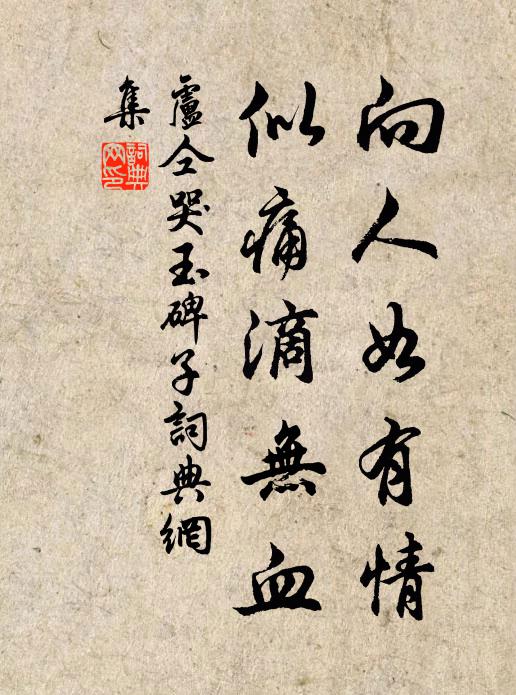 向人如有情
似痛滴無血
盧仝哭玉碑子詞典網
集
詞典
网印